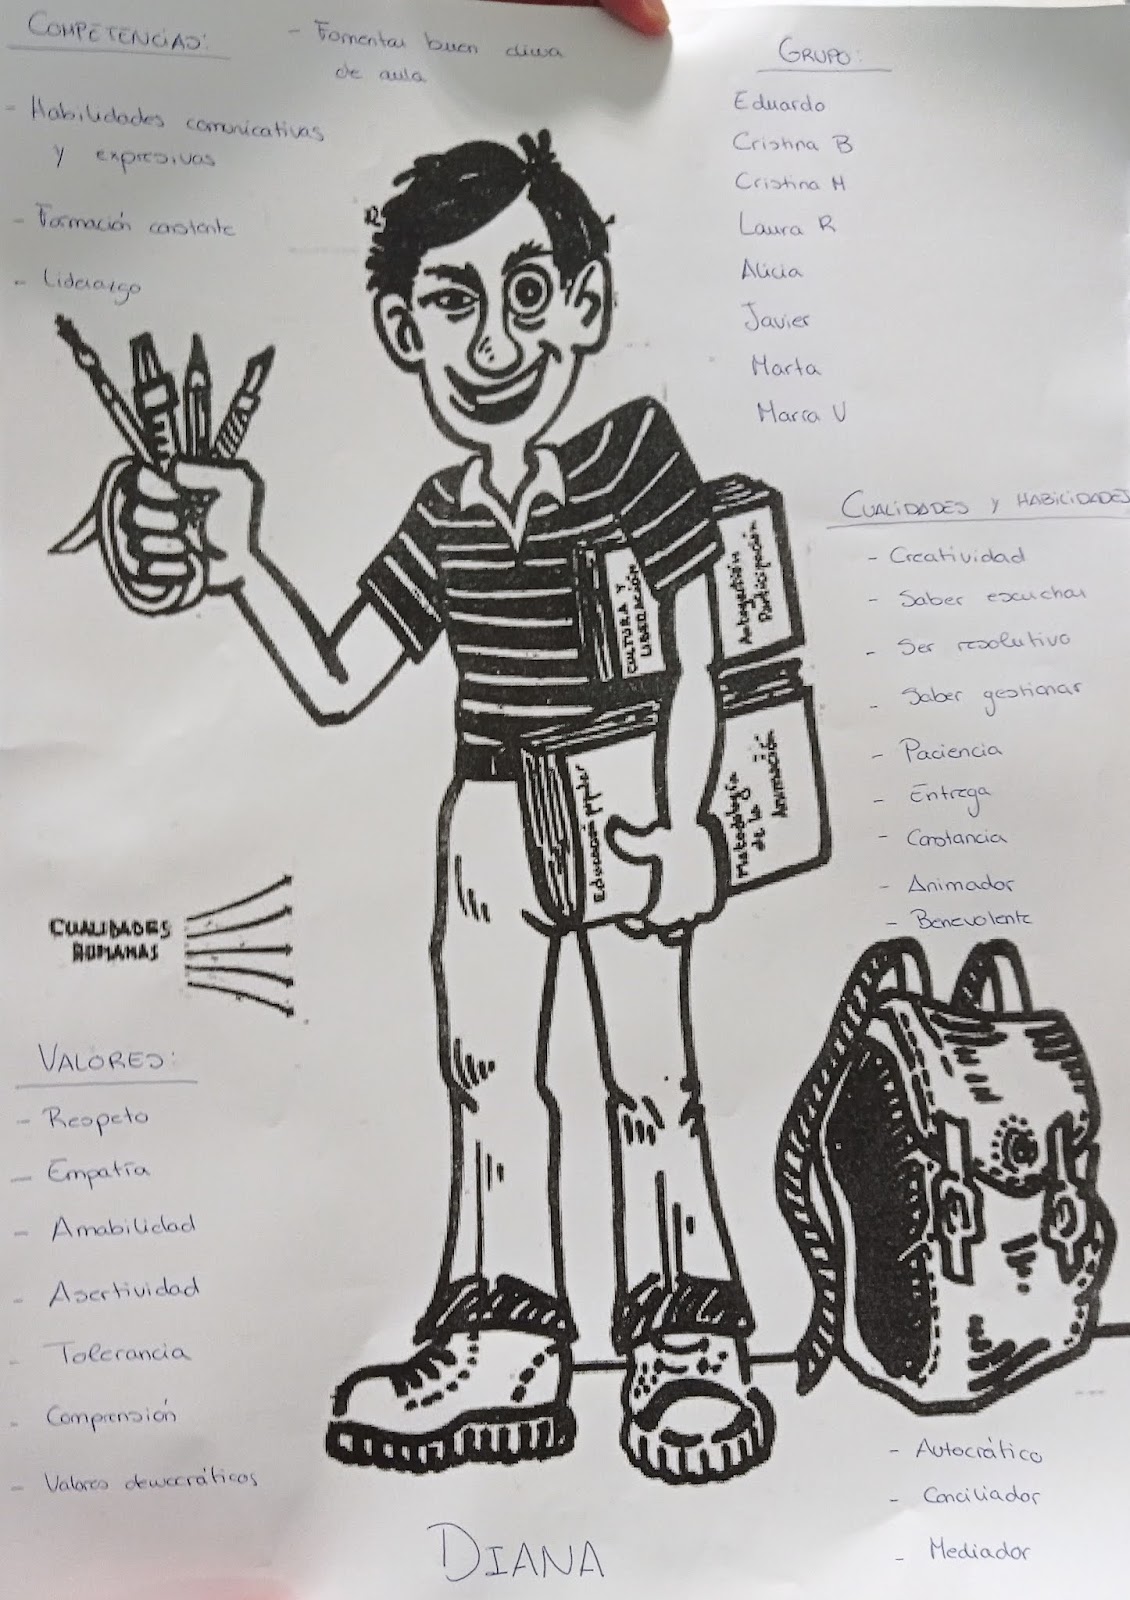 COMPETENCIAS:
- Fomentar buen clima
de aula
- Habilidades comunicativas
y expresivas
- Formación constante
- Liderazgo
GRUPO:
Eduardo
Cristina B
Cristina M
Laura R
Alicia
Javier
Marta
María V
CUALIDADES Y HABILIDADES
- Creatividad
- Saber escuchar
- Ser resolutivo
- Saber gestionar
- Paciencia
- Entrega
- Constancia
- Animador
- Benevolente
CULTURA Y
LIBERACIÓN
Autogestión
Participación
Educación popular
Metodología
de la
Animación
CUALIDADES
HUMANAS
VALORES:
- Respeto
- Empatía
- Amabilidad
- Asertividad
- Tolerancia
- Comprensión
- Valores democráticos
- Autocrático
- Conciliador
- Mediador
DIANA